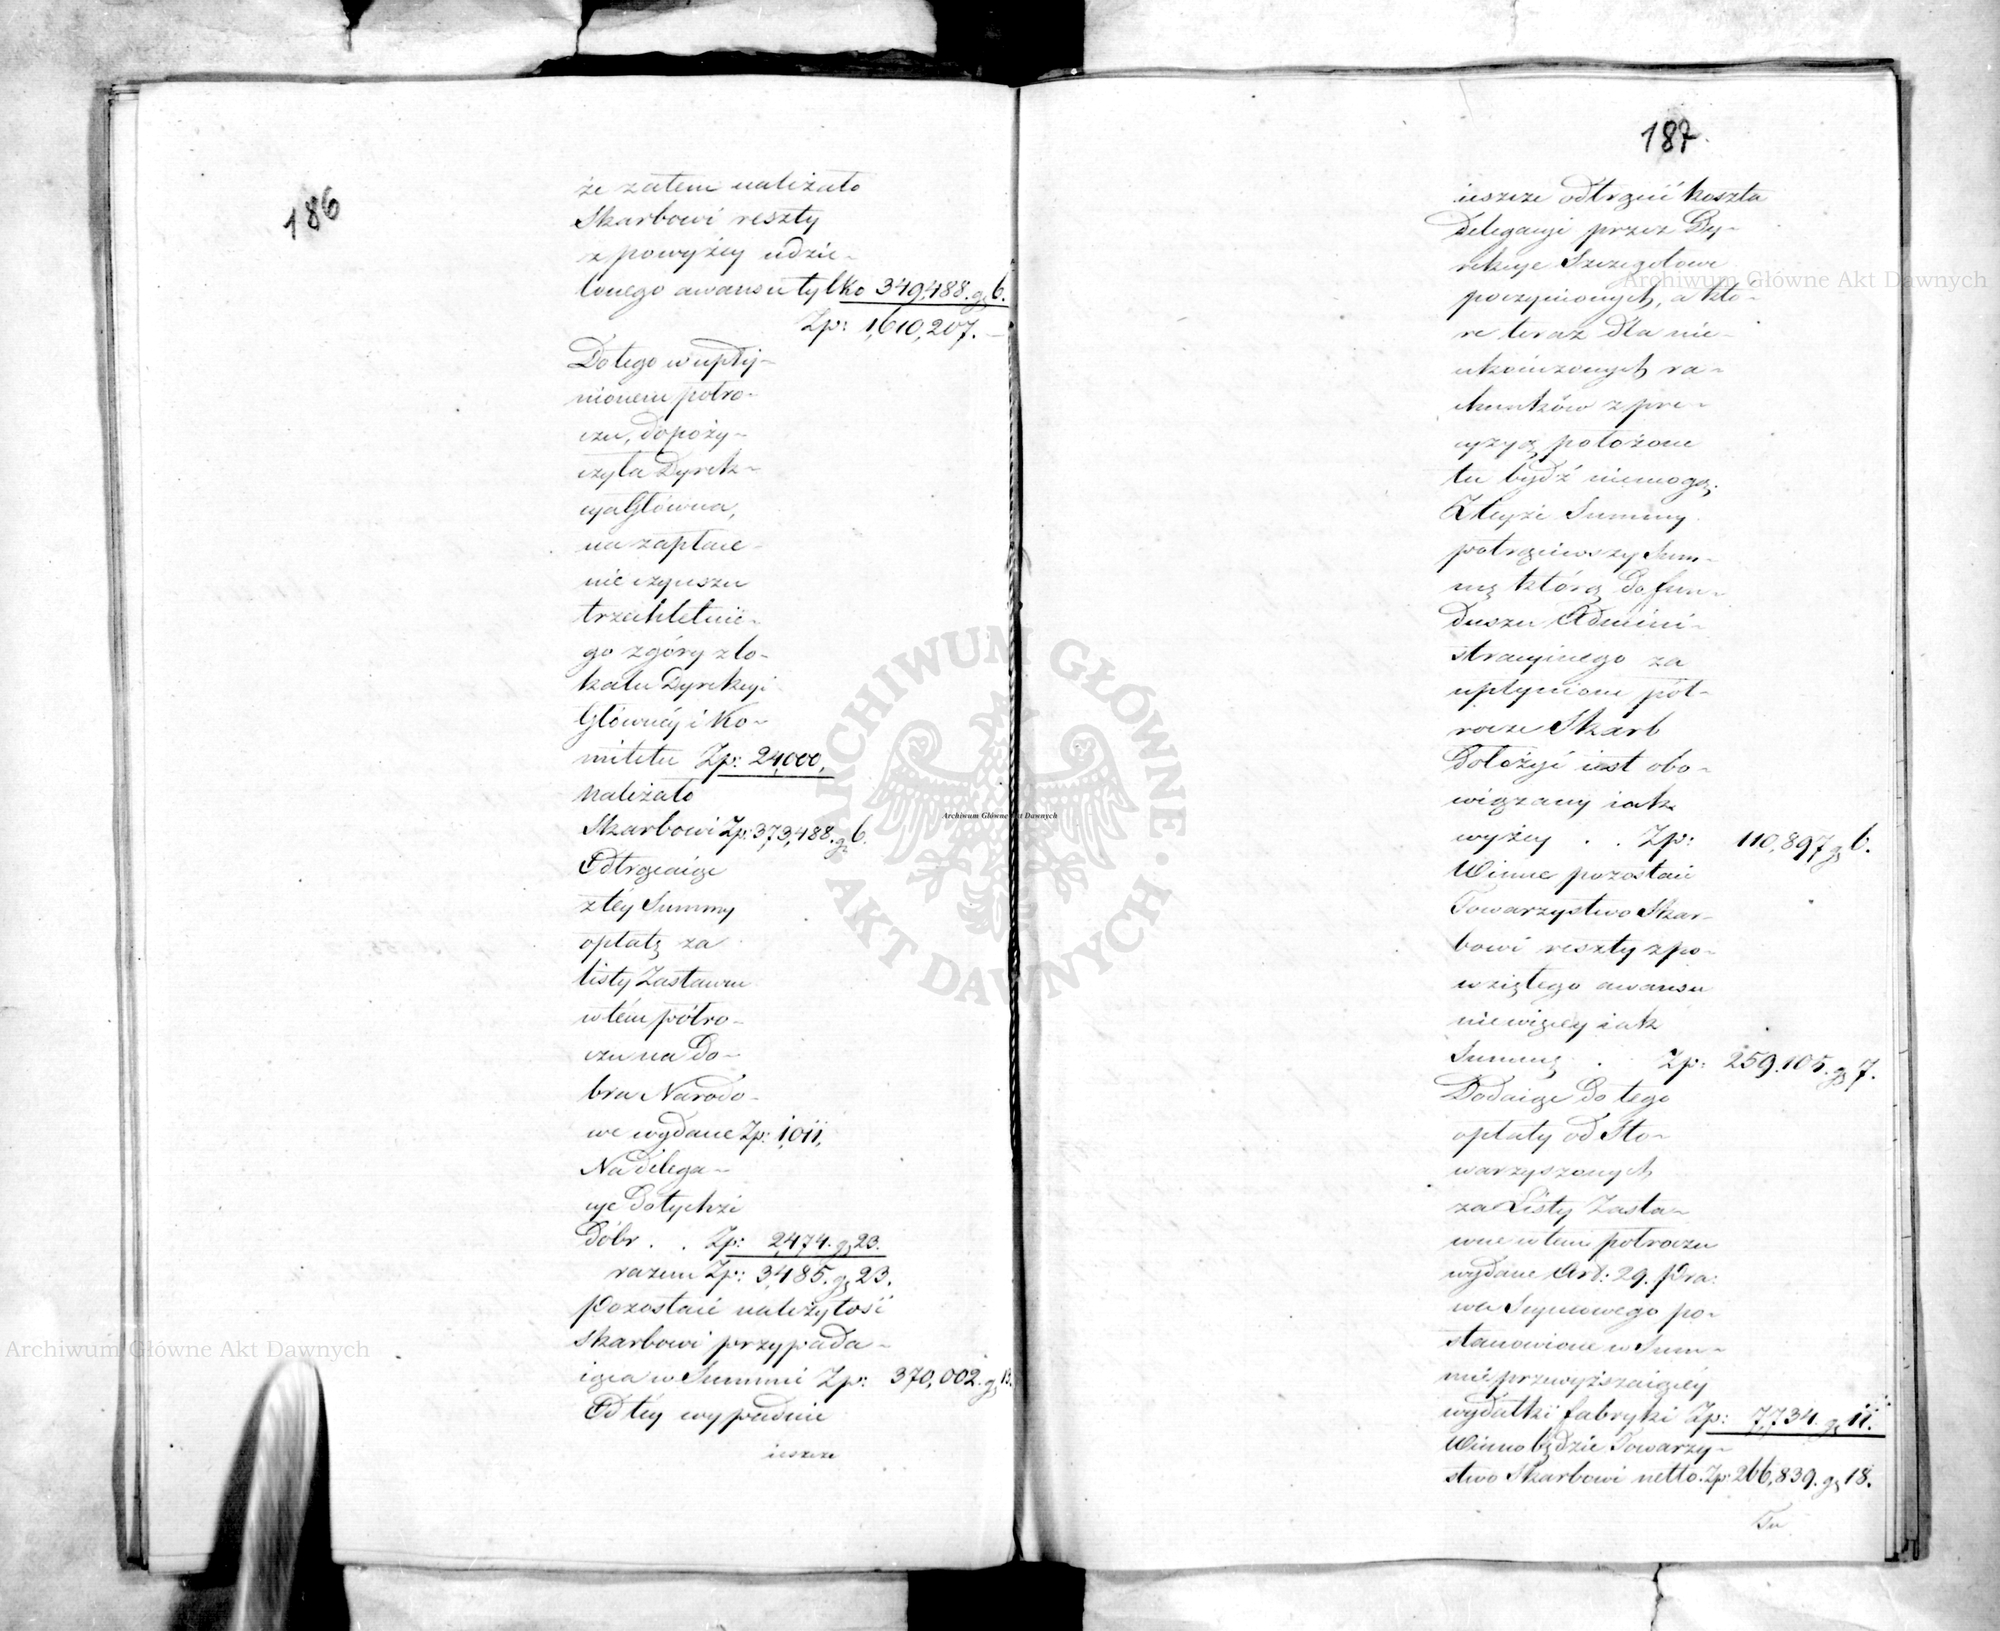 186
że zatem należało
Skarbowi reszty
z powyżéy udzie-
lonego awansu tylko 349,488. gr 6.
Zp: 1,610,207. —
Do tego w upły-
nionem półro-
czu, dopoży-
czyła Dyrek-
cya Główna,
na zapłace-
nie czynszu
trzechletnie-
go z góry z lo-
kalu Dyrekcyi
Głównéy i Ko-
mitetu Zp: 24,000,
należało
Skarbowi Zp: 373,488. gr 6.
Odtrącaiąc
z téy Summy
opłatę za
listy Zastawne
w tém półro-
czu na Do-
bra Narodo-
we wydane Zp: 1,011,
Na delega-
cye do tychże
Dóbr . . Zp: 2,474. gr 23.
razem Zp: 3485. gr 23.
Pozostaie należytość
Skarbowi przypada-
iąca w Summie Zp: 370,002. gr 13.
Od téy wypadnie
ieszcze
187.
ieszcze odtrącić koszta
Delegacyi przez Dy-
rekcye Szczegółowe
poczynionych, a któ-
re teraz dla nie-
ukończonych ra-
chunków z pre-
cyzyą położone
tu bydź niemogą.
Z téyże Summy
potrąciwszy Sum-
mę którą do fun-
duszu Admini-
stracyinego za
upłynione pół-
rocze Skarb
dołożyć iest obo-
wiązany iak
wyżey . . Zp: 110,897 gr 6.
Winne pozostaie
Towarzystwo Skar-
bowi reszty z po-
wziętego awansu
niewięcéy iak
Summę . Zp: 259.105. gr 7.
Dodaiąc do tego
opłaty od Sto-
warzyszonych
za Listy Zasta-
wne w tem półroczu
wydane Art: 29. Pra:
wa Seymowego po-
stanowione w Sum-
mie przewyższaiącéy
wydatki fabryki Zp: 7,734. gr 11.
Winno będzie Towarzy-
stwo Skarbowi netto. Zp: 266,839. gr 18.
Tu
Archiwum Główne Akt Dawnych
Archiwum Główne Akt Dawnych
Archiwum Główne Akt Dawnych
ARCHIWUM GŁÓWNE
AKT DAWNYCH